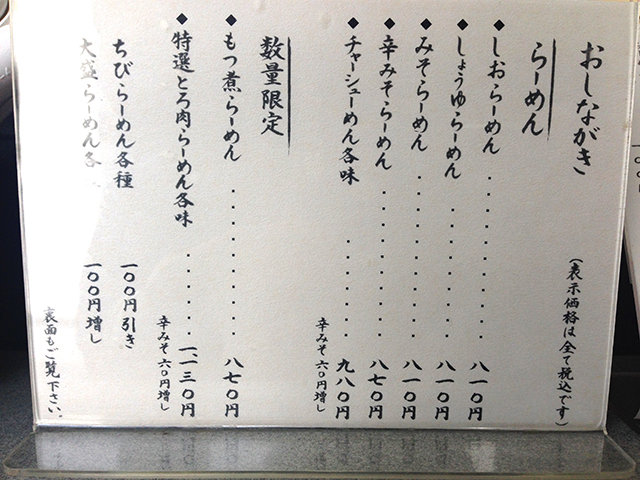 おしながき
(表示価格は全て税込です)
らーめん
◆しおらーめん..........八一〇円
◆しょうゆらーめん.........八一〇円
◆みそらーめん..........八一〇円
◆辛みそらーめん.........八七〇円
◆チャーシューめん各味.......九八〇円
辛みそ六〇円増し
数量限定
◆もつ煮らーめん..........八七〇円
◆特選とろ肉らーめん各味.....一、一三〇円
辛みそ六〇円増し
ちびらーめん各種 一〇〇円引き
大盛らーめん各 一〇〇円増し
裏面もご覧下さい.